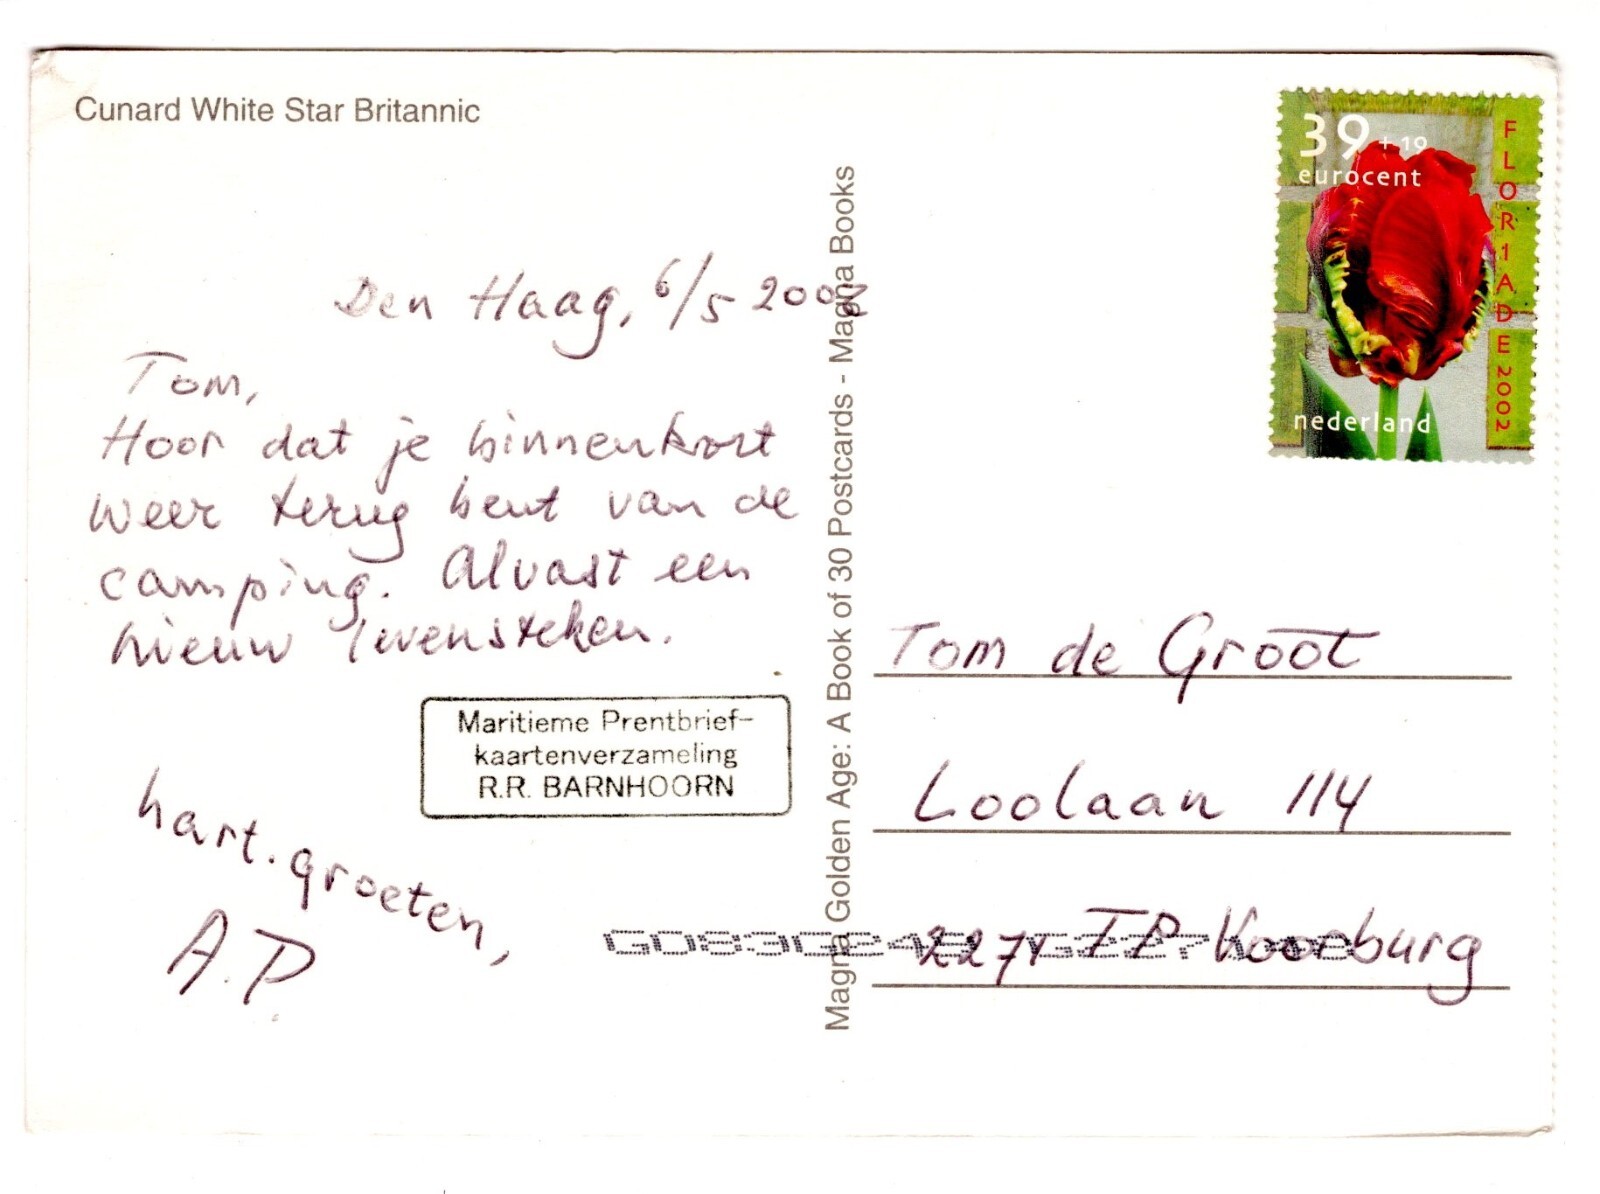 Cunard White Star Britannic
Den Haag, 6/5
Tom,
Hoor dat je binnenkort
weer terug bent van de
camping. Alvast een
nieuw levensteken.
Maritieme Prentbrief-
kaartenverzameling
R.R. BARNHOORN
hart. groeten,
A.P
Magna Golden Age: A Book of 30 Postcards - Magna Books
39 + 19
eurocent
FLORIADE 2002
nederland
Tom de Groot
Loolaan 114
2271 TP Voorburg